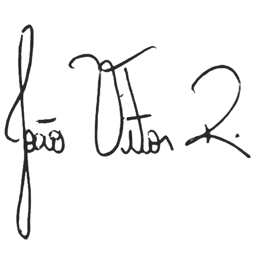 João Vitor R.